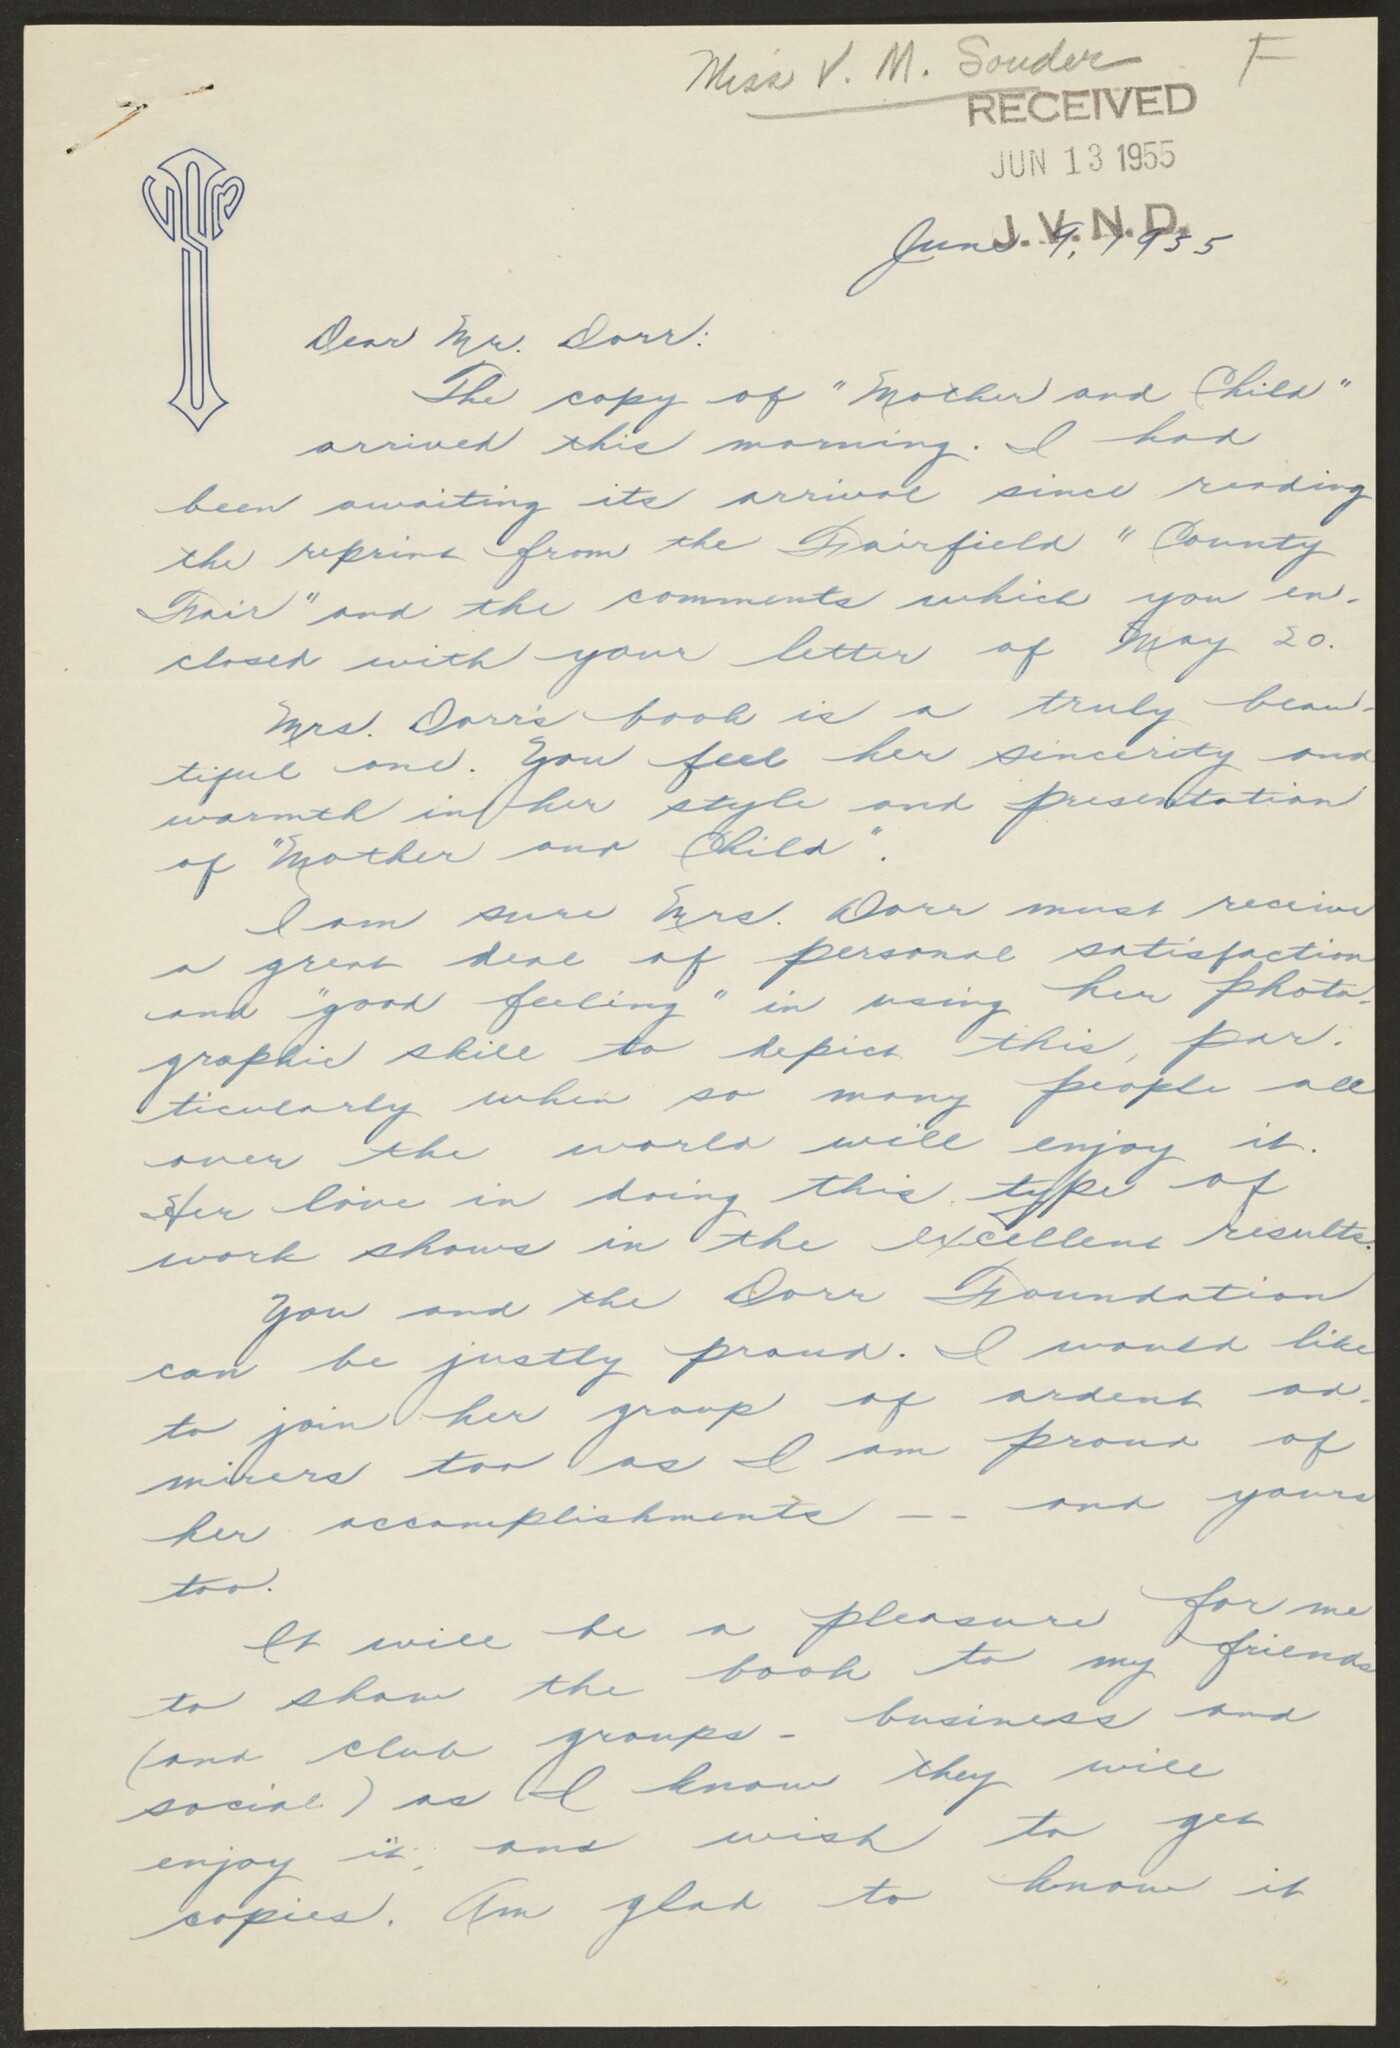 Miss V. M. Souder F
RECEIVED
JUN 13 1955
J.V.N.D.
June 9, 1955
Dear Mr. Dorr:
The copy of "Mother and Child"
arrived this morning. I had
been awaiting its arrival since reading
the reprint from the Fairfield "County
Fair" and the comments which you en-
closed with your letter of May 20.
Mrs. Dorr's book is a truly beau-
tiful one. You feel her sincerity and
warmth in her style and presentation
of "Mother and Child".
I am sure Mrs. Dorr must receive
a great deal of personal satisfaction
and "good feeling" in using her photo-
graphic skill to depict this, par-
ticularly when so many people all
over the world will enjoy it.
Her love in doing this type of
work shows in the excellent results.
You and the Dorr Foundation
can be justly proud. I would like
to join her group of ardent ad-
mirers too as I am proud of
her accomplishments -- and yours
too.
It will be a pleasure for me
to show the book to my friends
(and club groups - business and
social) as I know they will
enjoy it, and wish to get
copies. Am glad to know it